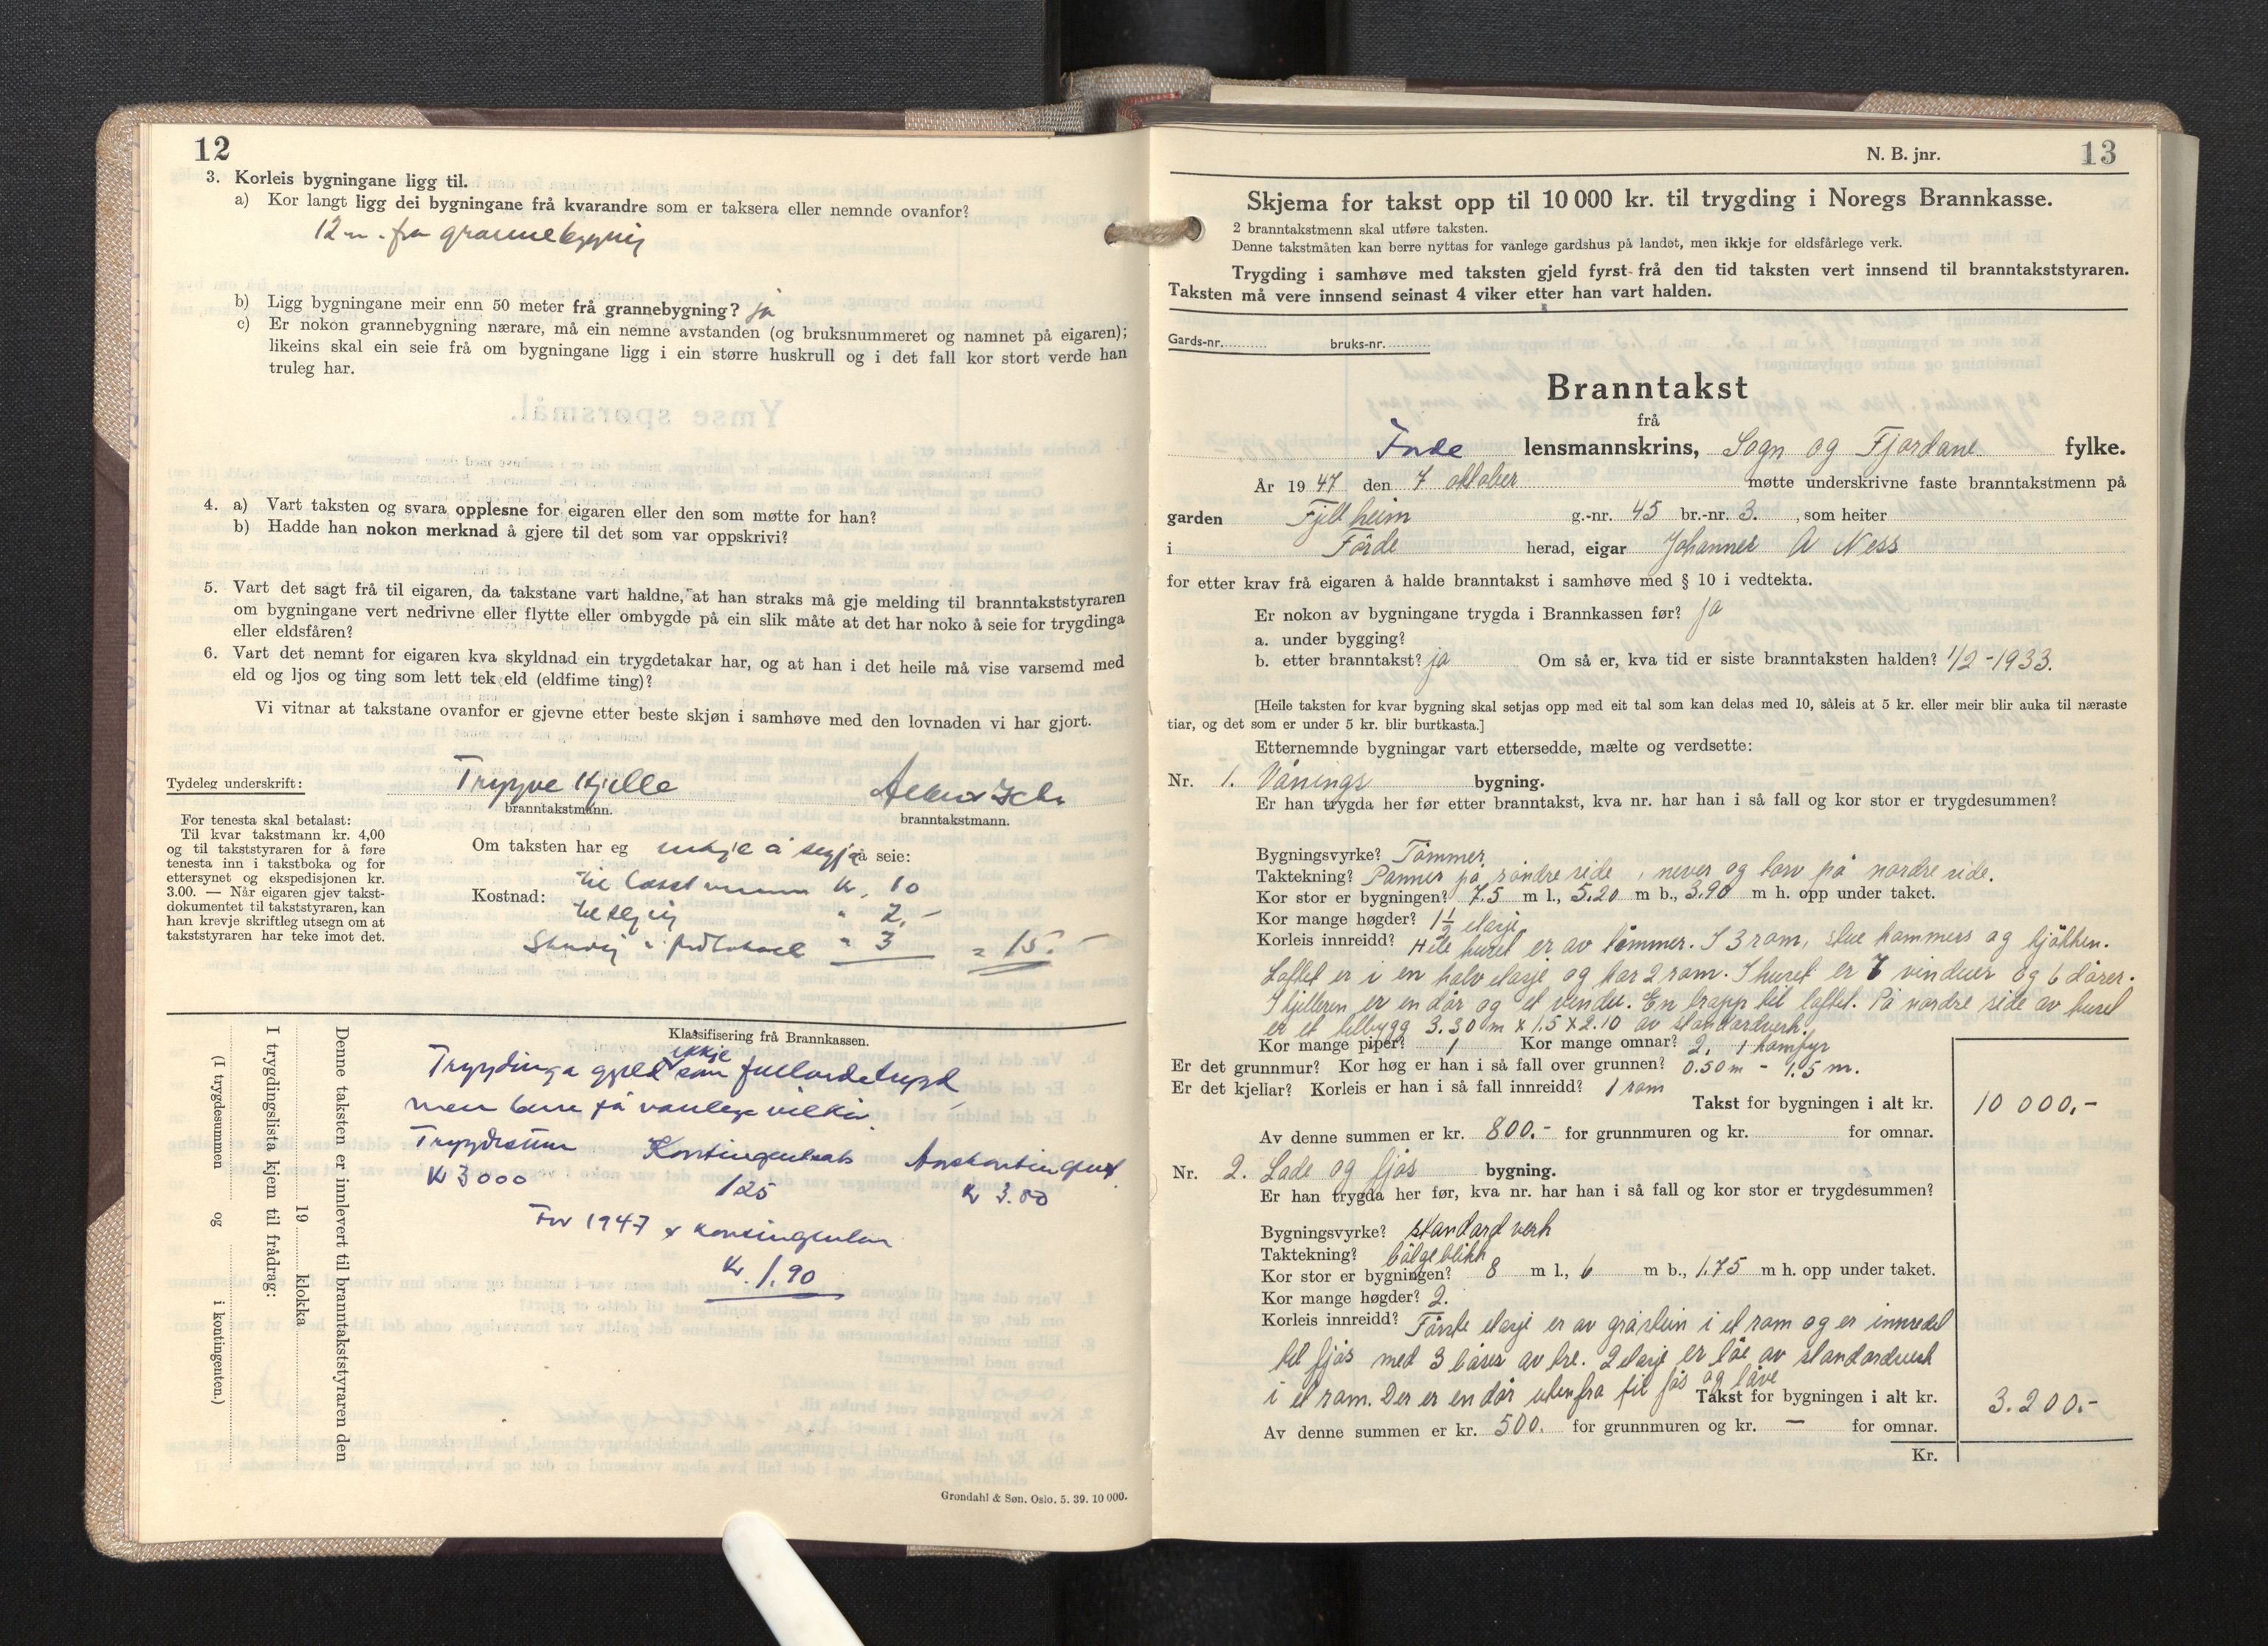 12
3. Korleis bygningane ligg til.
a) Kor langt ligg dei bygningane frå kvarandre som er taksera eller nemnde ovanfor?
12 m. fra grannebygning
b) Ligg bygningane meir enn 50 meter frå grannebygning? ja
c) Er nokon grannebygning nærare, må ein nemne avstanden (og bruksnummeret og namnet på eigaren);
likeins skal ein seie frå om bygningane ligg i ein større huskrull og i det fall kor stort verde han
truleg har.
4. a) Vart taksten og svara opplesne for eigaren eller den som møtte for han?
b) Hadde han nokon merknad å gjere til det som var oppskrivi?
5. Vart det sagt frå til eigaren, da takstane vart haldne, at han straks må gje melding til branntakststyraren
om bygningane vert nedrivne eller flytte eller ombygde på ein slik måte at det har noko å seie for trygdinga
eller eldsfåren?
6. Vart det nemnt for eigaren kva skyldnad ein trygdetakar har, og at han i det heile må vise varsemd med
eld og ljos og ting som lett tek eld (eldfime ting)?
Vi vitnar at takstane ovanfor er gjevne etter beste skjøn i samhøve med den lovnaden vi har gjort.
Tydeleg underskrift: Trygve Kjelle
branntakstmann. branntakstmann.
For tenesta skal betalast:
Til kvar takstmann kr. 4,00
og til takststyraren for å føre
tenesta inn i takstboka og for
ettersynet og ekspedisjonen kr.
3.00. — Når eigaren gjev takst-
dokumentet til takststyraren, kan
han krevje skriftleg utsegn om at
takststyraren har teke imot det.
Om taksten har eg inkje å segja å seie:
Kostnad: til takstmennene kr. 10
" 2,-
protokoll " 3 = 15.-
Klassifisering frå Brannkassen.
Trygdinga gjeld ikkje som fullverdetrygd
men berre på vanlege vilkår.
Trygdesum Kontingentsats Årskontingent
Kr 3000 125 Kr 3.80
For 1947 er kontingenten
Kr. 1.90
Denne taksten er innlevert til branntakststyraren den
19 klokka
I trygdingslista kjem til frådrag:
(I trygdesummen og i kontingenten.)
Grøndahl & Søn. Oslo. 5. 39. 10 000.
N. B. jnr. 13
Skjema for takst opp til 10 000 kr. til trygding i Noregs Brannkasse.
2 branntakstmenn skal utføre taksten.
Denne takstmåten kan berre nyttas for vanlege gardshus på landet, men ikkje for eldsfårlege verk.
Trygding i samhøve med taksten gjeld fyrst frå den tid taksten vert innsend til branntakststyraren.
Taksten må vere innsend seinast 4 viker etter han vart halden.
Gards-nr. bruks-nr.
Branntakst
frå
Førde lensmannskrins, Sogn og Fjordane fylke.
År 1947 den 7 oktober møtte underskrivne faste branntakstmenn på
garden Fjellheim g.-nr. 45 br.-nr. 3. , som heiter
i Förde herad, eigar Johannes A Ness
for etter krav frå eigaren å halde branntakst i samhøve med § 10 i vedtekta.
Er nokon av bygningane trygda i Brannkassen før? ja
a. under bygging?
b. etter branntakst? ja Om så er, kva tid er siste branntaksten halden? 1/2 -1933.
[Heile taksten for kvar bygning skal setjas opp med eit tal som kan delas med 10, såleis at 5 kr. eller meir blir auka til næraste
tiar, og det som er under 5 kr. blir burtkasta.]
Etternemnde bygningar vart ettersedde, mælte og verdsette:
Nr. 1. Vånings bygning.
Er han trygda her før etter branntakst, kva nr. har han i så fall og kor stor er trygdesummen?
Bygningsvyrke? Tömmer
Taktekning? Panner på söndre side, never og torv på nordre side.
Kor stor er bygningen? 7.5 m l., 5.20 m b., 3.90 m h. opp under taket.
Kor mange høgder? 1 1/2 etasje
Korleis innreidd? Hele huset er av tömmer. I 3 rom, stue kammers og kjökken.
Loftet er i en halv etasje og har 2 rom. I huset er 7 vinduer og 6 dörer.
I kjelleren er en dör og et vindu. En trapp til loftet. På nordre side av huset
er et tilbygg 3.30 m x 1.5 x 2.10 av standardverk.
Kor mange piper? 1 Kor mange omnar? 2, 1 komfyr
Er det grunnmur? Kor høg er han i så fall over grunnen? 0.50 m - 1.5 m.
Er det kjellar? Korleis er han i så fall innreidd? 1 rom
Takst for bygningen i alt kr. 10 000,-
Av denne summen er kr. 800.- for grunnmuren og kr. for omnar.
Nr. 2. Lade og fjös bygning.
Er han trygda her før, kva nr. har han i så fall og kor stor er trygdesummen?
Bygningsvyrke? standard verk
Taktekning? bölgeblikk
Kor stor er bygningen? 8 m l., 6 m b., 1.75 m h. opp under taket.
Kor mange høgder? 2.
Korleis innreidd? Förste etasje er av gråstein i et rom og er innredet
til fjös med 3 båser av tre. 2 etasje er löe av standardverk
i et rom. Der er en dör utenfra til fjös og låve
Takst for bygningen i alt kr. 3.200.-
Av denne summen er kr. 500. for grunnmuren og kr. — for omnar.
Kr.